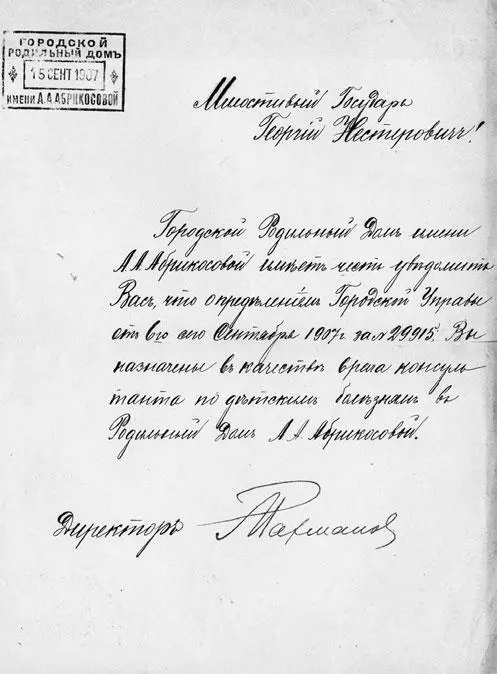 ГОРОДСКОЙ
РОДИЛЬНЫЙ ДОМЪ
15 СЕНТ 1907
ИМЕНИ А.А.АБРИКОСОВОЙ
Милостивый Государь
Георгій Нестеровичъ!
Городской Родильный Домъ имени
А.А.Абрикосовой имѣетъ честь увѣдомить
Васъ, что опредѣленіемъ Городской Управы
отъ 6го сего Сентября 1907 г. за № 29915. Вы
назначены въ качествѣ врача консуль
танта по дѣтскимъ болѣзнямъ въ
Родильный Домъ А.А.Абрикосовой.
Директоръ Рахмановъ